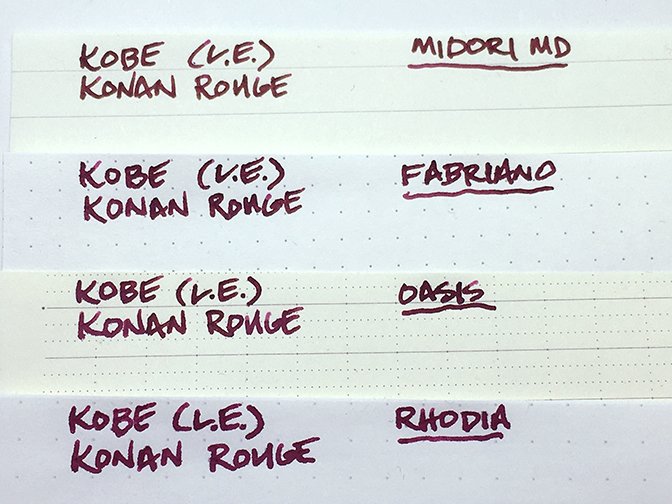 KOBE (L.E.) MIDORI MD
KONAN ROUGE
KOBE (L.E.) FABRIANO
KONAN ROUGE
KOBE (L.E.) OASIS
KONAN ROUGE
KOBE (L.E.) RHODIA
KONAN ROUGE